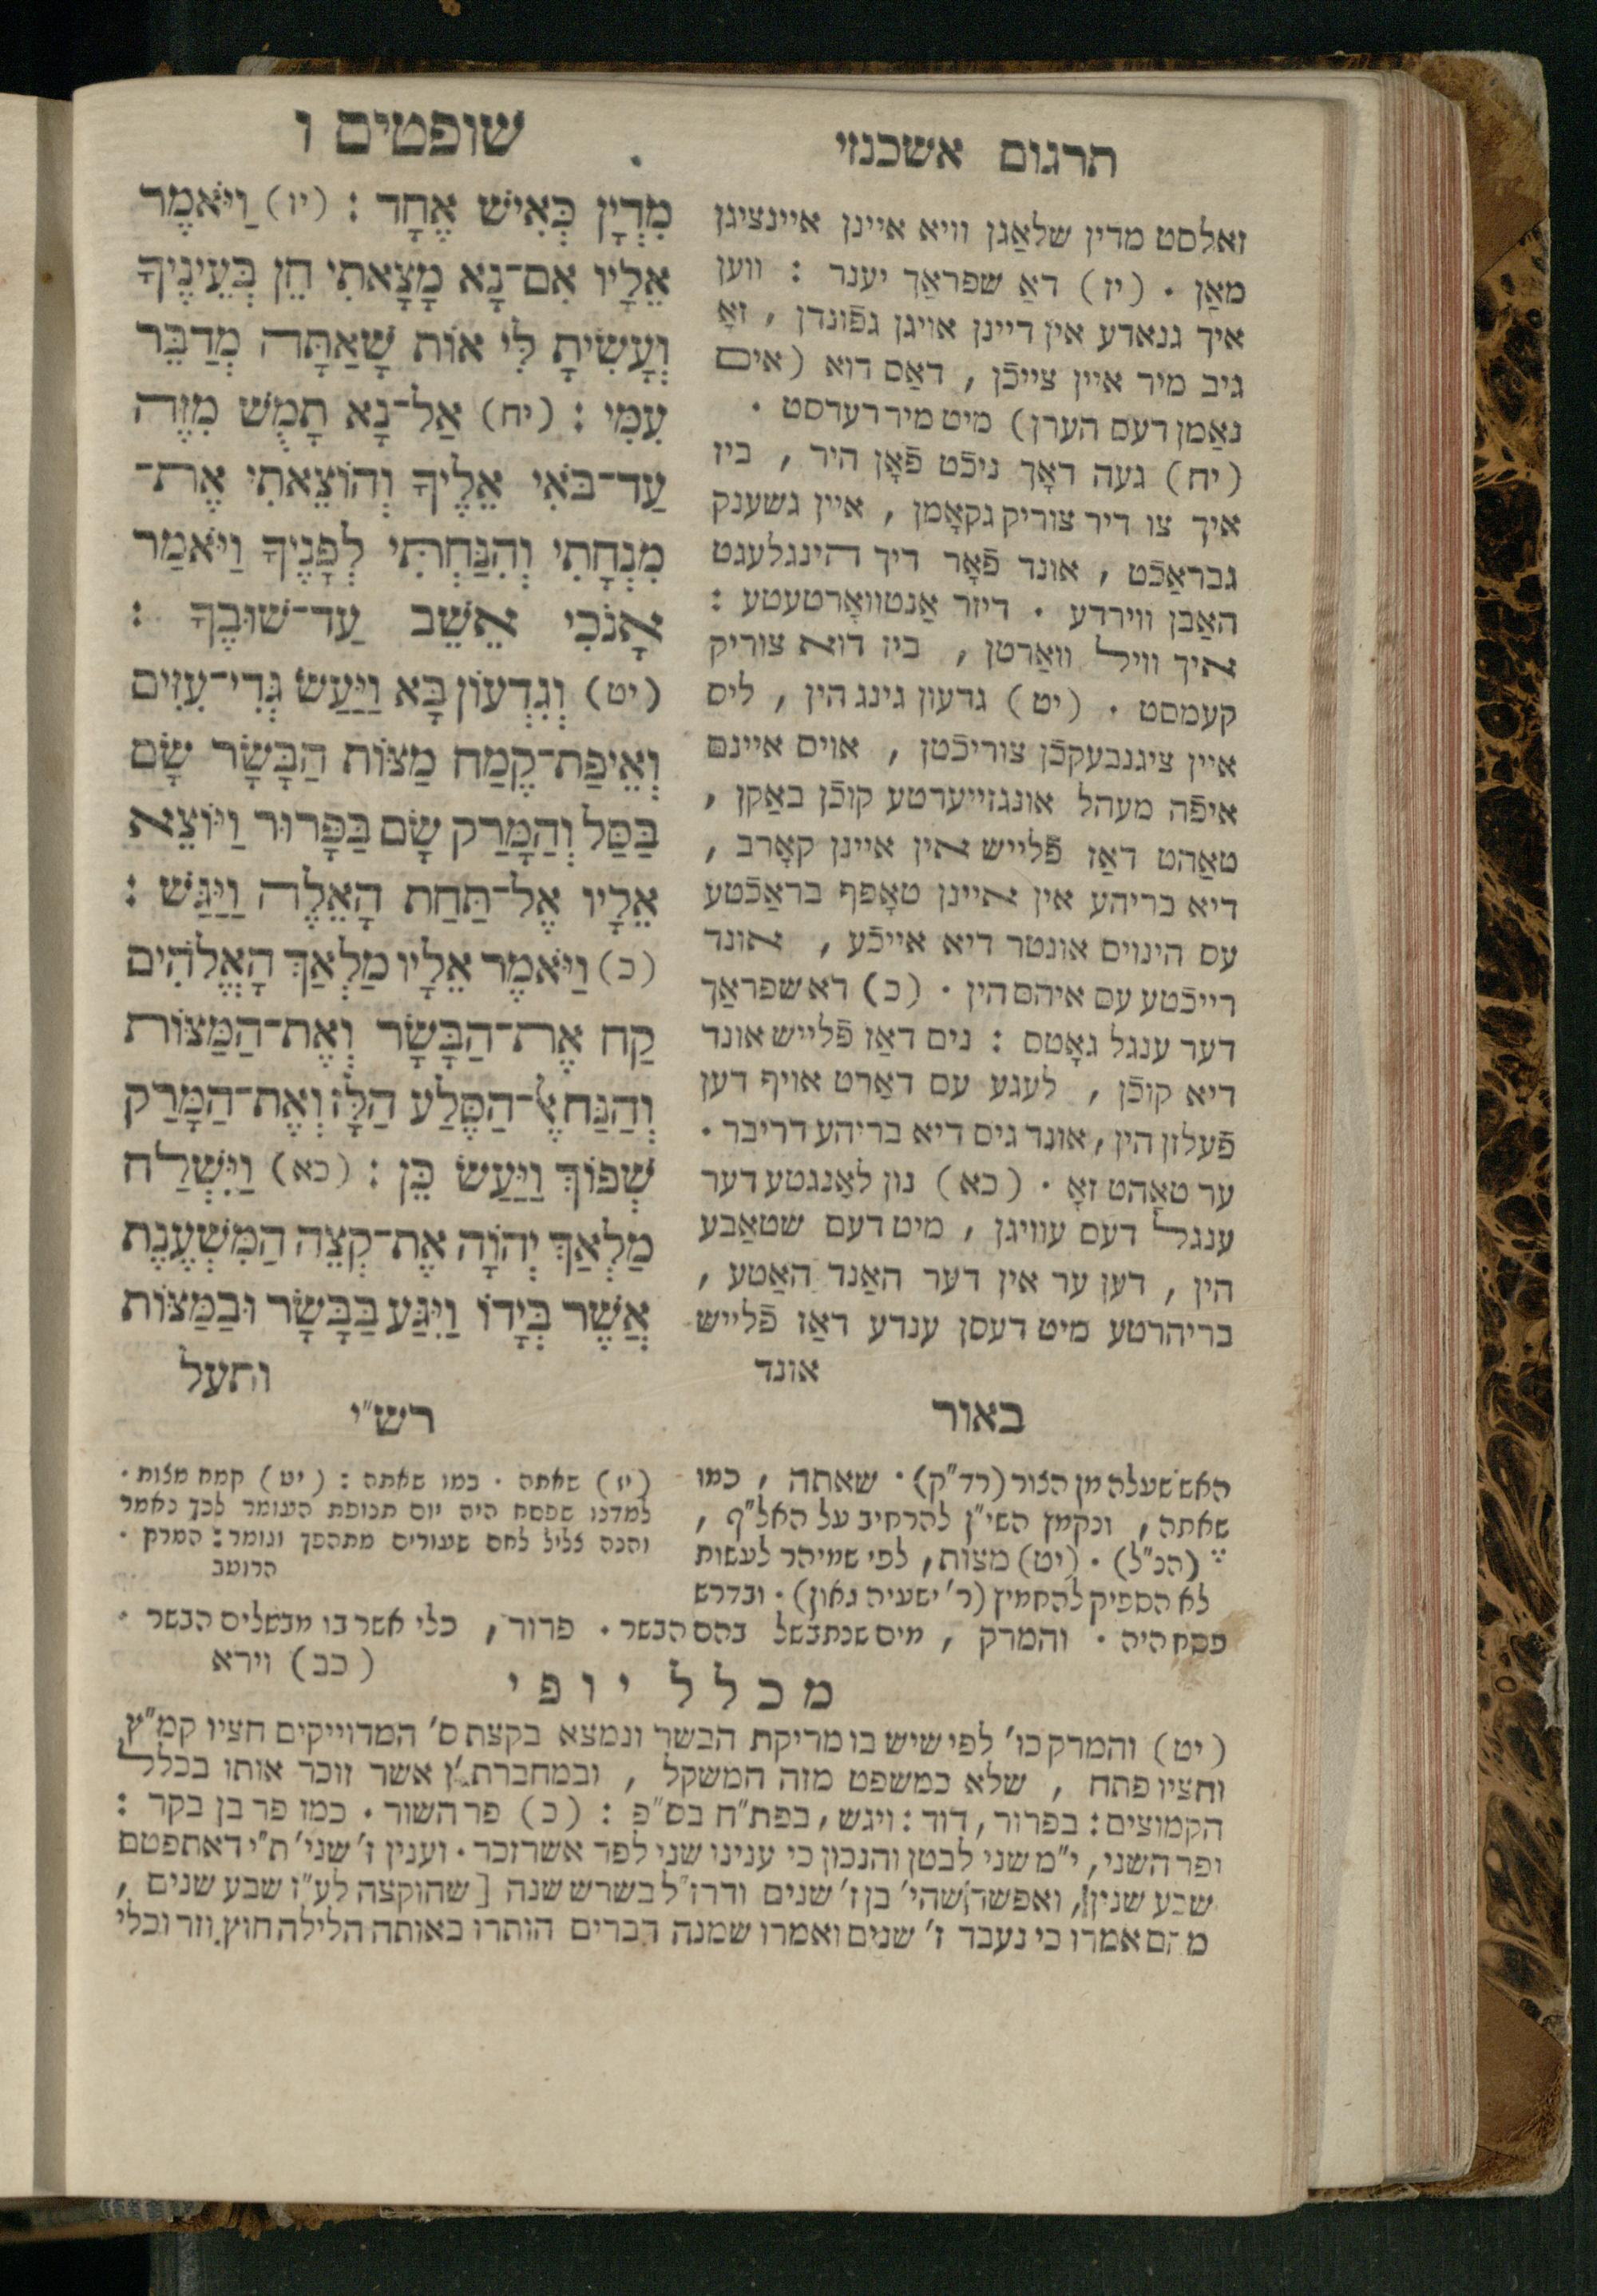 תרגום אשכנזי
שופטים ו
זאלסט מדין שלאַגן וויא איינן איינציגן
מאַן . (יז) דאַ שפראַך יענר : ווען
איך גנאדע אין דיינן אויגן גפֿונדן , זאָ
גיב מיר איין צייכֿן , דאַס דוא (אים
נאַמן דעס הערן) מיט מיר רעדסט .
(יח) געה דאָך ניכֿט פֿאָן היר , ביז
איך צו דיר צוריק גקאָמן , איין גשענק
גבראַכֿט , אונד פֿאָר דיך הינגלעגט
האַבן ווירדע . דיזר אַנטוואָרטעטע :
איך וויל וואַרטן , ביז דוא צוריק
קעמסט . (יט) גדעון גינג הין , ליס
איין ציגנבעקכֿן צוריכֿטן , אויס איינם
איפֿה מעהל אונגזייערטע קוכֿן באַקן ,
טאַהט דאַז פֿלייש אין איינן קאָרב ,
דיא בריהע אין איינן טאָפף בראַכֿטע
עס הינויס אונטר דיא אייכֿע , אונד
רייכֿטע עס איהם הין . (כ) דא שפראַך
דער ענגל גאָטס : נים דאַז פֿלייש אונד
דיא קוכֿן , לעגע עס דאָרט אויף דען
פֿעלזן הין , אונד גיס דיא בריהע דריבר .
ער טאַהט זאָ . (כא) נון לאַנגטע דער
ענגל דעס עוויגן , מיט דעם שטאַבע
הין , דען ער אין דער האַנד האַטע ,
בריהרטע מיט דעסן ענדע דאַז פֿלייש
אונד
מִדְיָן כְּאִישׁ אֶחָד : (יז) וַיֹּאמֶר
אֵלָיו אִם־נָא מָצָאתִי חֵן בְּעֵינֶיךָ
וְעָשִׂיתָ לִּי אוֹת שָׁאַתָּה מְדַבֵּר
עִמִּי : (יח) אַל־נָא תָמֻשׁ מִזֶּה
עַד־בֹּאִי אֵלֶיךָ וְהוֹצֵאתִי אֶת־
מִנְחָתִי וְהִנַּחְתִּי לְפָנֶיךָ וַיֹּאמַר
אָנֹכִי אֵשֵׁב עַד־שׁוּבֶךָ :
(יט) וְגִדְעוֹן בָּא וַיַּעַשׂ גְּדִי־עִזִּים
וְאֵיפַת־קֶמַח מַצּוֹת הַבָּשָׂר שָׂם
בַּסַּל וְהַמָּרַק שָׂם בַּפָּרוּר וַיּוֹצֵא
אֵלָיו אֶל־תַּחַת הָאֵלֶה וַיַּגַּשׁ :
(כ) וַיֹּאמֶר אֵלָיו מַלְאַךְ הָאֱלֹהִים
קַח אֶת־הַבָּשָׂר וְאֶת־הַמַּצּוֹת
וְהַנַּח אֶל־הַסֶּלַע הַלָּז וְאֶת־הַמָּרַק
שְׁפוֹךְ וַיַּעַשׂ כֵּן : (כא) וַיִּשְׁלַח
מַלְאַךְ יְהוָֹה אֶת־קְצֵה הַמִּשְׁעֶנֶת
אֲשֶׁר בְּיָדוֹ וַיִּגַּע בַּבָּשָׂר וּבַמַּצּוֹת
ותעל
באור
האש שעלה מן הצור (רד״ק) . שאתה , כמו
שאתה , ונקמץ השי״ן להרחיב על האל״ף ,
(הנ״ל) . (יט) מצות , לפי שמיהר לעשות
לא הספיק להחמיץ (ר׳ ישעיה גאון) . ובדרש
פסח היה . והמרק , מים שנתבשל בהם הבשר . פרור , כלי אשר בו מבשלים הבשר .
(כב) וירא
רש״י
(יז) שאתה . כמו שאתה : (יט) קמח מצות .
למדנו שפסח היה יום תנופת העומר לכך נאמר
והנה צליל לחם שעורים מתהפך וגומר : המרק .
הרוטב
מכלל יופי
(יט) והמרק כו׳ לפי שיש בו מריקת הבשר ונמצא בקצת ס׳ המדוייקים חציו קמ״ץ
וחציו פתח , שלא כמשפט מזה המשקל , ובמחברת ׳ן אשר זוכר אותו בכלל
הקמוצים : בפרור , דוד : ויגש , בפת״ח בס״פ : (כ) פר השור . כמו פר בן בקר :
ופר השני , י״מ שני לבטן והנכון כי ענינו שני לפר אשר זכר . וענין ז׳ שני׳ ת״י דאתפטם
שבע שנין , ואפשר שהי׳ בן ז׳ שנים ודרז״ל בשרש שנה [שהוקצה לע״ז שבע שנים ,
מהם אמרו כי נעבד ז׳ שנים ואמרו שמנה דברים הותרו באותה הלילה חוץ וזר וכלי